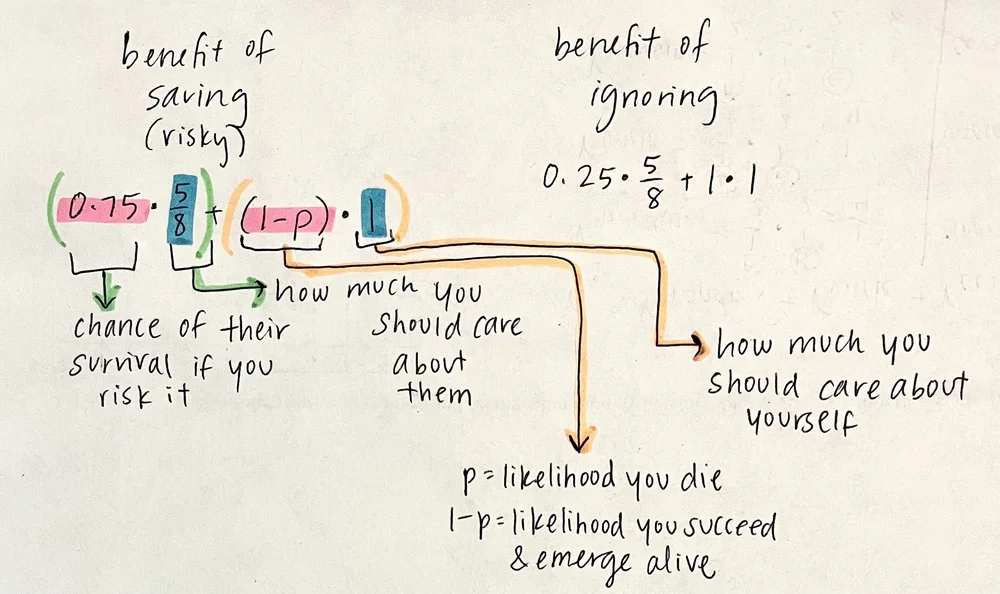 benefit of
saving
(risky)
(0.75 · 5/8) + ((1-p) · 1)
how much you
should care
about
them
chance of their
survival if you
risk it
benefit of
ignoring
0.25 · 5/8 + 1 · 1
how much you
should care about
yourself
p = likelihood you die
1-p = likelihood you succeed
& emerge alive